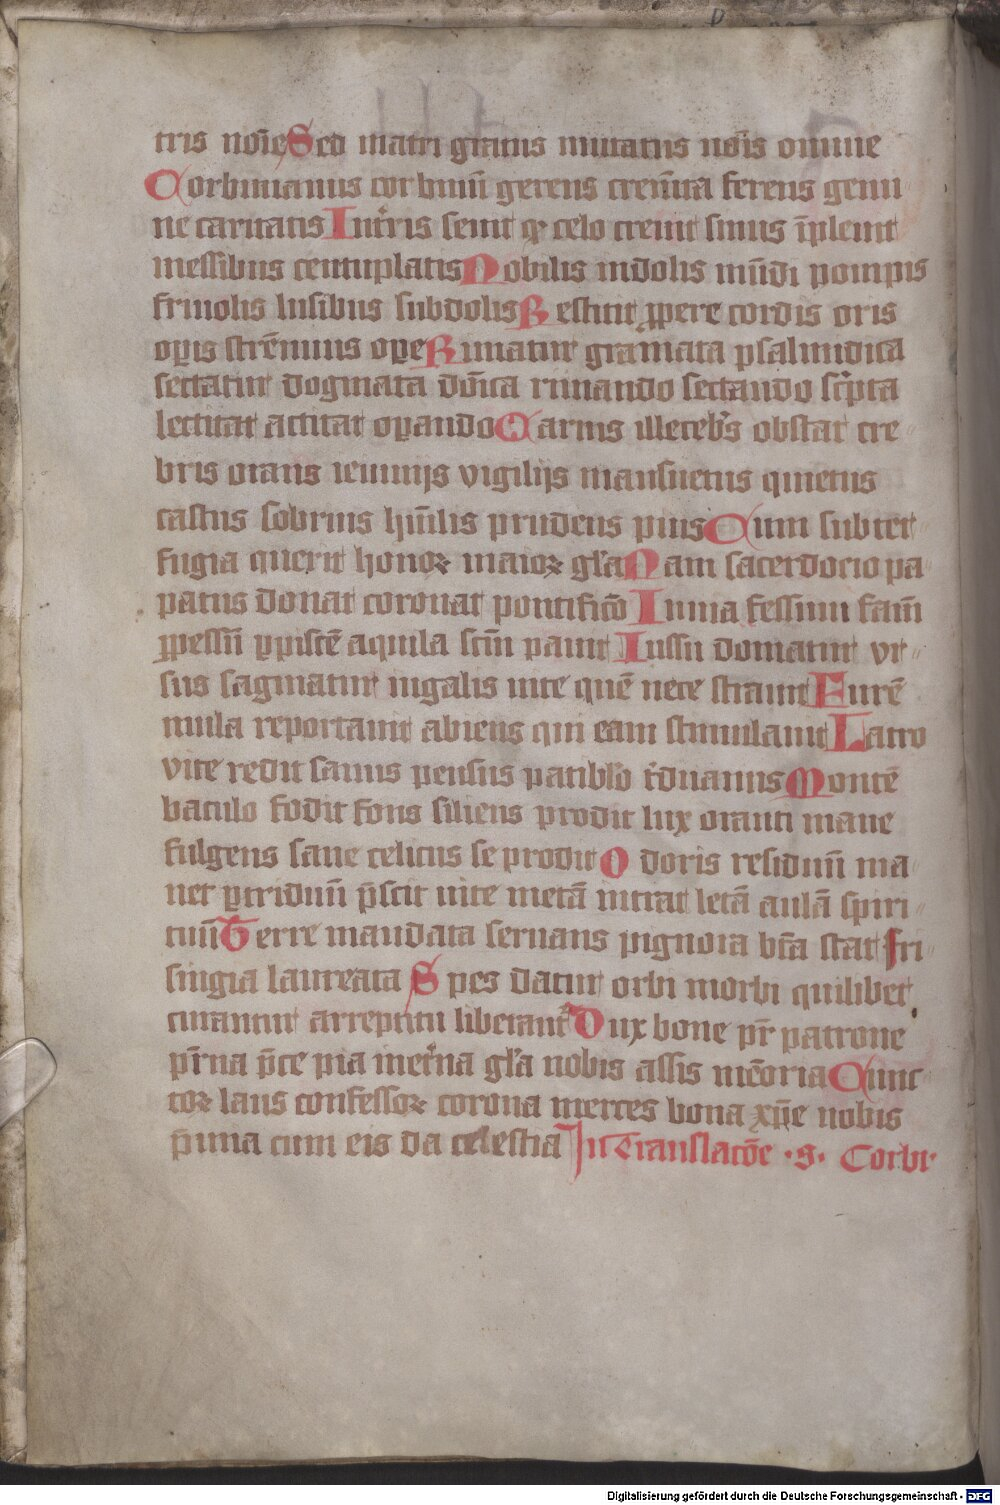 tris noīe Sed matri gratus mutatus nōis omine
Corbinianus corbinū gerens creīta ferens gemi
ne caritatis In tris seuit qr celo creuit sinus īpleuit
messibus centuplatis Nobilis indolis mūdi pompis
friuolis lusibus subdolis Restitit ꝓpere cordis oris
oꝑis strēnuus oꝑe Rimatur gramata psalmidica
sectatur dogmata dn̄ica rimando sectando sc̄pta
lectitat actitat oꝑando Carnis illecebˀs obstat cre
bris orans ieiunijs vigilijs mansuetus quietus
castus sobrius hūilis prudens pius Cum subter
fugia querit honoꝝ maioꝝ gl̄a Nam sacerdocio pa
patus donat coronat pontificō In uia fessum fam̄
ꝓpessū ꝑ piscē aquila scm̄ pauit Iussu domatur vr
sus saginatur iugalis uite quē nece strauit Eurē
mula reportauit abiens qui eam stimulauit Latro
vite redit sanus pensus patiblˀo tˀduanus Montē
baculo fodit fons siliens prodit lux oranti mane
fulgens sane celitus se prodit Odoris residuū ma
net ꝑ triduū p̄scit uite metā intrat letā aulā spiri
tuū Terre mandata seruans pignora bt̄a stat Fri
singia laureata Spes datur orbi morbi quilibet
curantur arreptitii liberantˀ Dux bone pr̄ patrone
pr̄na p̄ce pia met̄na gl̄a nobis assis mēoria Cunc
toꝝ laus confessoꝝ corona merces bona xp̄e nobis
p̄mia cum eis da celestia In Translacōe · S · Corbi·
Digitalisierung gefördert durch die Deutsche Forschungsgemeinschaft - DFG